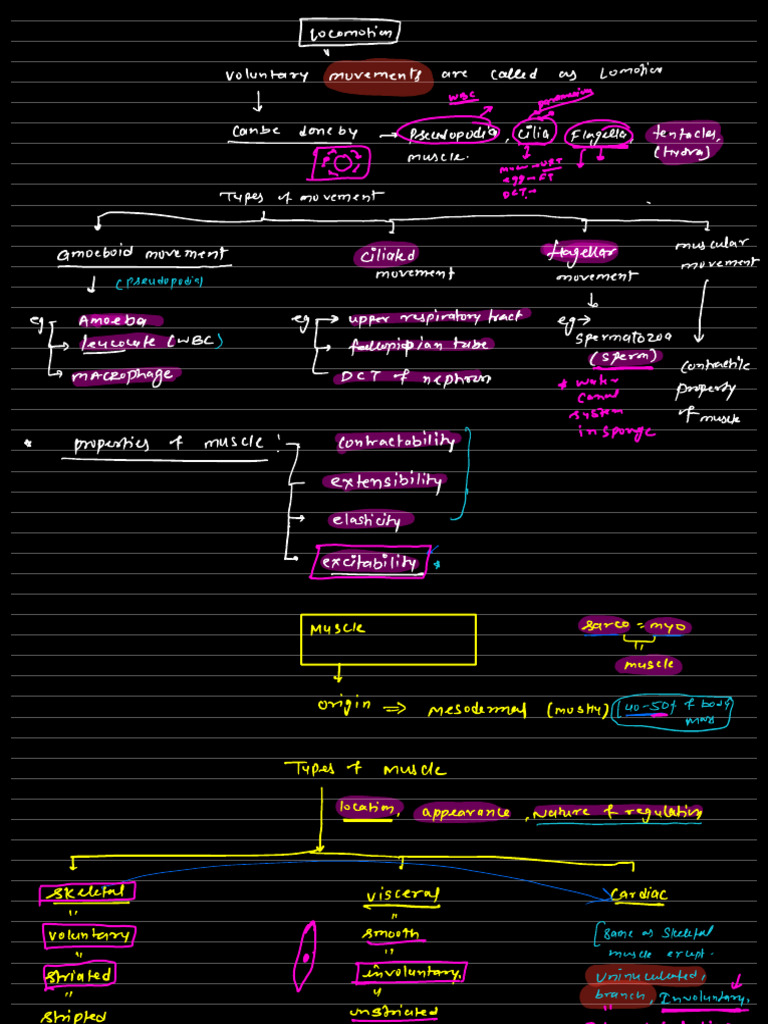 Locomotion
voluntary movements are called as Lomotion
WBC
paramoecium
Canbe done by → Pseudopodia, Cilia, Flagella, tentacles,
muscle. (Hydra)
egg → FT
DCT →
Types of movement
amoeboid movement
(Pseudopodia)
ciliated
movement
flagellar
movement
muscular
movement
eg Amoeba
leucocate (WBC)
macrophage
eg upper respiratory tract
fallopipian tube
DCT of nephron
eg →
spermatozoa
(sperm)
* water
canal
system
in sponge
contractile
property
of muscle
* properties of muscle :
contractability
extensibility
elasticity
excitability *
Muscle
sarco = myo
"
muscle
origin ⇒ mesodermal (mostly) [40-50% of body
mass
Types of muscle
location, appearance, Nature of regulation
skeletal
"
voluntary
"
striated
"
stripted
visceral
"
smooth
involuntary,
"
unstriated
cardiac
[same as skeletal
muscle except.
Uninuculated,
branch, Involuntary,